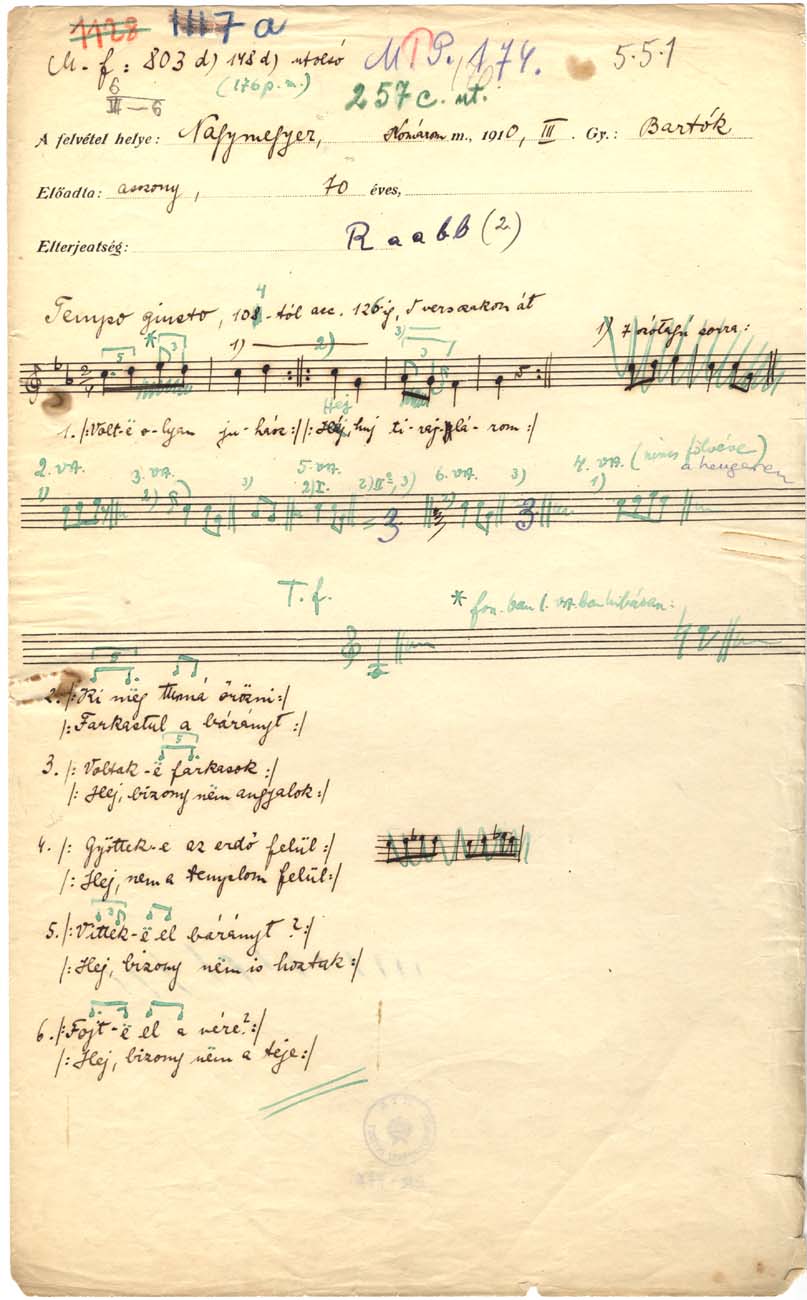 1128 1117 a
M-f: 803 d) 148 d) utolsó M T P. 174. 5.5.1
(176 p.m.)
6
III—6
257c. ut.
A felvétel helye: Nagymegyer, Komárom m., 1910, III. Gy.: Bartók
Előadta: asszony, 70 éves,
Elterjeatség: Raabb (2)
Tempo giusto, 108-tól acc. 126ig, 5 versszakon át
1) 7 szótagú sorra:
* 5 3 1) 2) 3) 3
Hej
1. /:Volt-ë o-lyan ju-hász:/ /: Hej, huj ti-raj-plá-rom:/
2. vsz. 3. vsz. 5. vsz. 6. vsz. 4. vsz. (nincs fölvéve)
a hengeren
1) 2) 3) 2) I. 2) II°, 3) 2) 3) 1)
T. f.
* fon.-ban 1. vsz.-ban hibásan:
2. /:Ki mëg tunná őrözni:/
/:Farkastul a bárányt :/
3. /: Voltak-ë farkasok :/
/: Hej, bizony nëm angyalok:/
4. /: Gyöttek-e az erdő felül :/
/: Hej, nem a templom felül:/
5. /:Vittek-ë el bárányt ?:/
/:Hej, bizony nëm is hoztak:/
6. /:Fojt-ë el a vére?:/
/:Hej, bizony nëm a téje:/